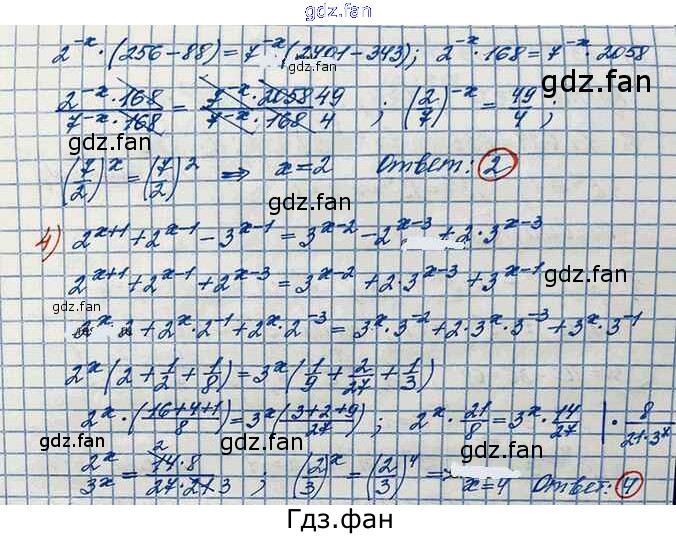 gdz.fan
2^{-x}·(256-88)=7^{-x}(2401-343); 2^{-x}·168=7^{-x}·2058
gdz.fan
gdz.fan
\frac{2^{-x}·168}{7^{-x}·168} = \frac{7^{-x}·2058 49}{7^{-x}·168 4} ; (\frac{2}{7})^{-x} = \frac{49}{4};
gdz.fan
gdz.fan
(\frac{7}{2})^x = (\frac{7}{2})^2 ⇒ x=2 Ответ: 2
gdz.fan
gdz.fan
4) 2^{x+1}+2^{x-1}-3^{x-1}=3^{x-2}-2^{x-3}+2·3^{x-3}
2^{x+1}+2^{x-1}+2^{x-3}=3^{x-2}+2·3^{x-3}+3^{x-1}
gdz.fan
gdz.fan
gdz.fan
2^x·2+2^x·2^{-1}+2^x·2^{-3}=3^x·3^{-2}+2·3^x·3^{-3}+3^x·3^{-1}
2^x(2+\frac{1}{2}+\frac{1}{8})=3^x(\frac{1}{9}+\frac{2}{27}+\frac{1}{3})
gdz.fan
2^x·(\frac{16+4+1}{8})=3^x(\frac{3+2+9}{27}); 2^x·\frac{21}{8}=3^x·\frac{14}{27} |·\frac{8}{21·3^x}
gdz.fan
gdz.fan
gdz.fan
\frac{2^x}{3^x}=\frac{2 14·8}{27·21·3} ; (\frac{2}{3})^x=(\frac{2}{3})^4 ⇒ x=4 Ответ: 4
gdz.fan
Гдз.фан